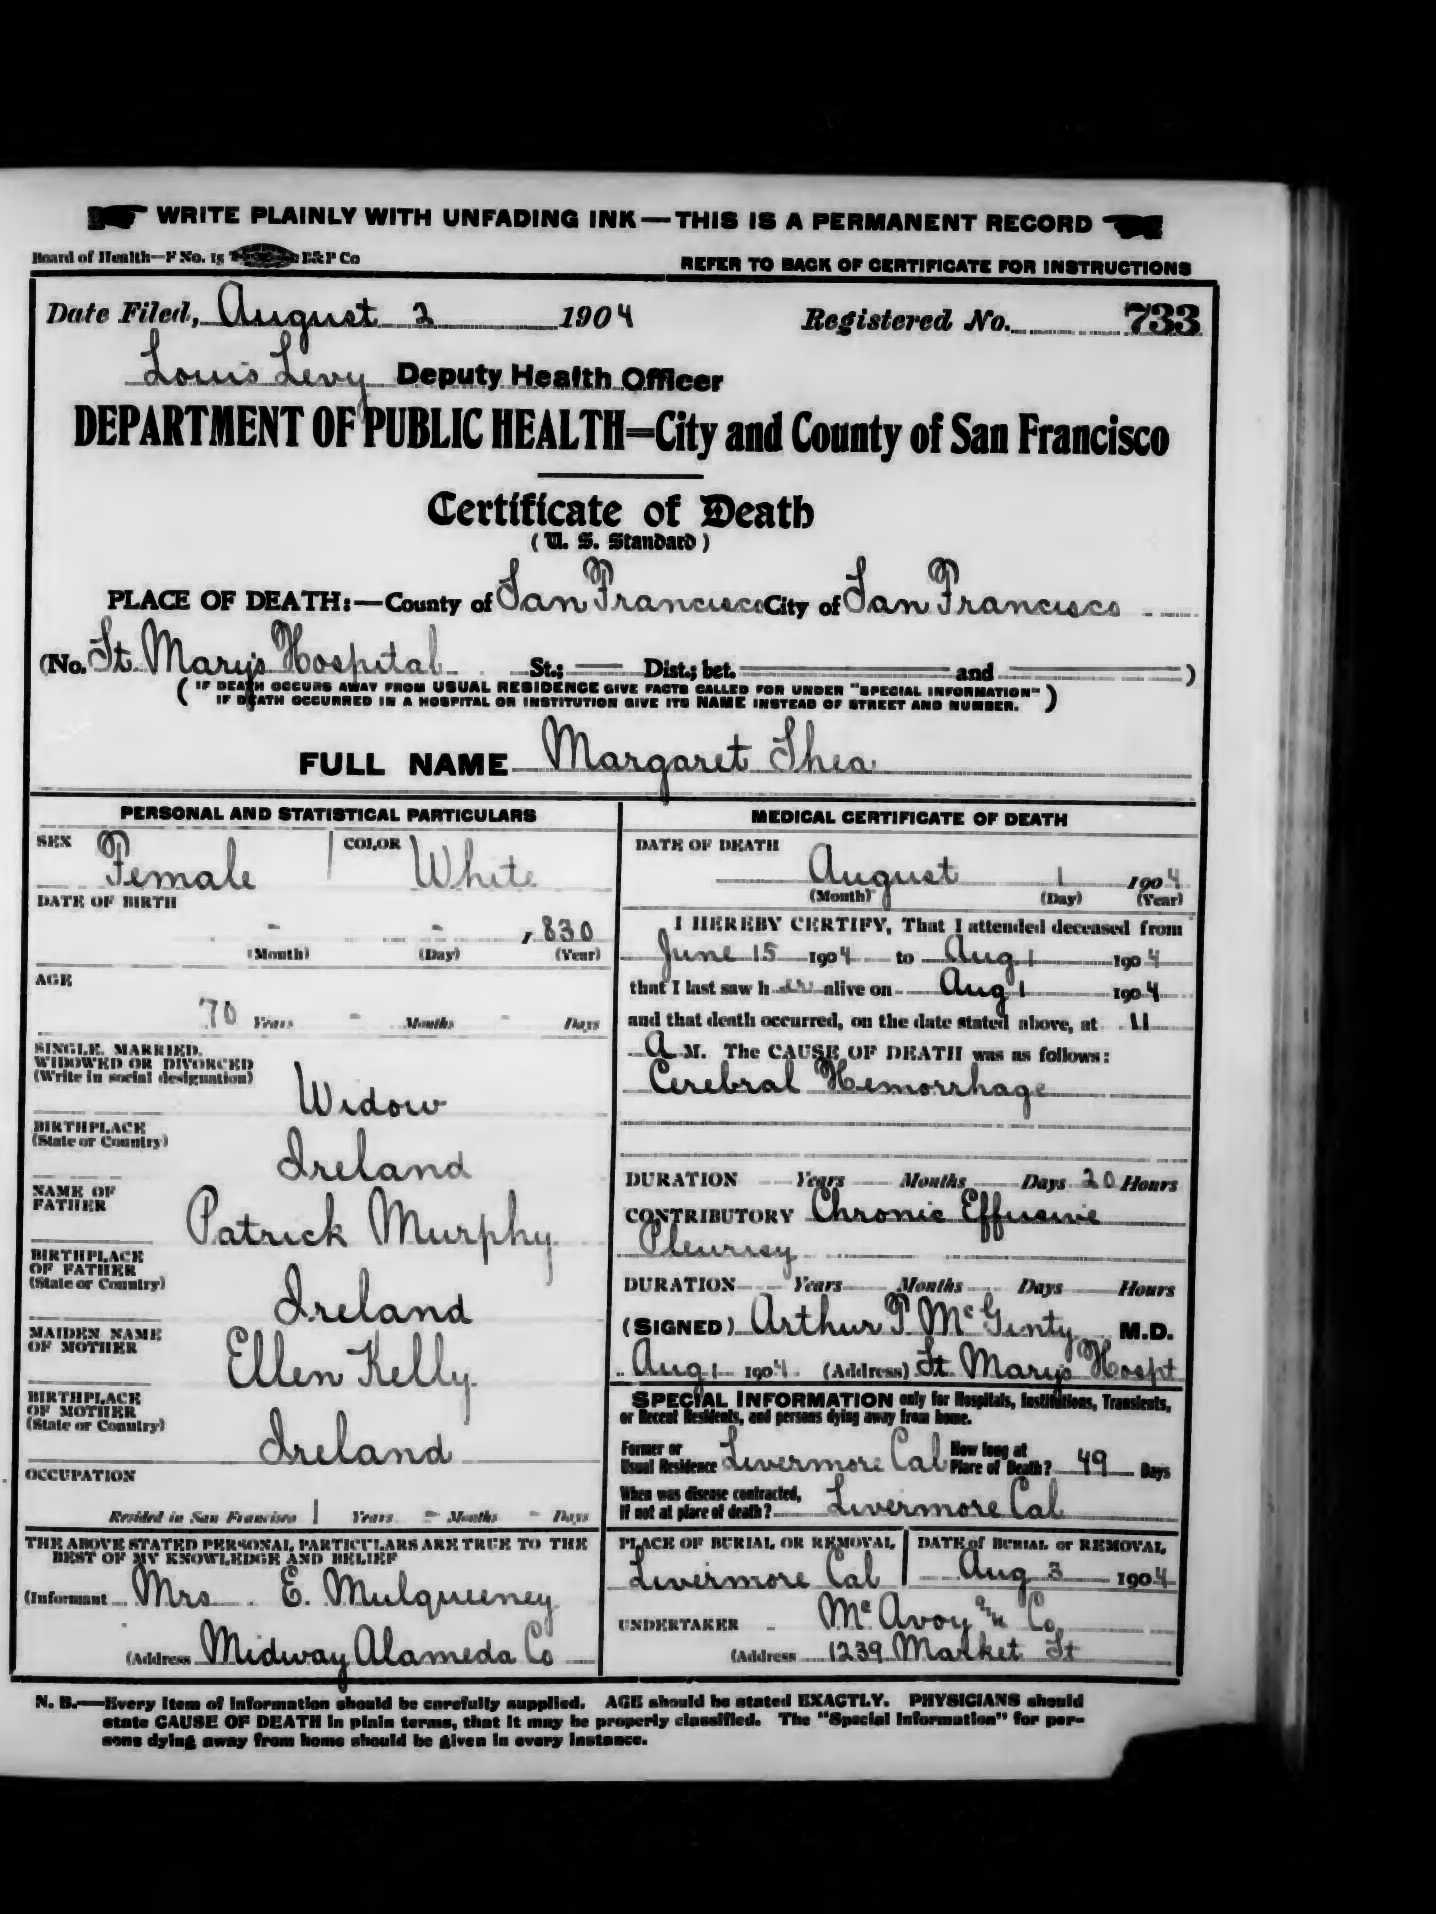 WRITE PLAINLY WITH UNFADING INK — THIS IS A PERMANENT RECORD
Board of Health—F No. 15 B&P Co
REFER TO BACK OF CERTIFICATE FOR INSTRUCTIONS
Date Filed, August 2 1904 Registered No. 733
Louis Levy Deputy Health Officer
DEPARTMENT OF PUBLIC HEALTH=City and County of San Francisco
Certificate of Death
( U. S. Standard )
PLACE OF DEATH:—County of San Francisco City of San Francisco
(No. St. Mary's Hospital St.; — Dist.; bet. — and — )
( IF DEATH OCCURS AWAY FROM USUAL RESIDENCE GIVE FACTS CALLED FOR UNDER "SPECIAL INFORMATION"
IF DEATH OCCURRED IN A HOSPITAL OR INSTITUTION GIVE ITS NAME INSTEAD OF STREET AND NUMBER. )
FULL NAME Margaret Shea
PERSONAL AND STATISTICAL PARTICULARS
SEX Female COLOR White
DATE OF BIRTH
- - 1830
(Month) (Day) (Year)
AGE
70 Years - Months - Days
SINGLE, MARRIED,
WIDOWED OR DIVORCED
(Write in social designation)
Widow
BIRTHPLACE
(State or Country)
Ireland
NAME OF
FATHER
Patrick Murphy
BIRTHPLACE
OF FATHER
(State or Country)
Ireland
MAIDEN NAME
OF MOTHER
Ellen Kelly
BIRTHPLACE
OF MOTHER
(State or Country)
Ireland
OCCUPATION
Resided in San Francisco 1 Years - Months - Days
THE ABOVE STATED PERSONAL PARTICULARS ARE TRUE TO THE
BEST OF MY KNOWLEDGE AND BELIEF
(Informant Mrs. E. Mulqueeney
(Address Midway Alameda Co
MEDICAL CERTIFICATE OF DEATH
DATE OF DEATH
August 1 1904
(Month) (Day) (Year)
I HEREBY CERTIFY, That I attended deceased from
June 15 1904 to Aug 1 1904
that I last saw her alive on Aug 1 1904
and that death occurred, on the date stated above, at 11
A M. The CAUSE OF DEATH was as follows:
Cerebral Hemorrhage
DURATION Years Months Days 20 Hours
CONTRIBUTORY Chronic Effusive
Pleurisy
DURATION Years Months Days Hours
(SIGNED) Arthur P. McGinty M.D.
Aug 1 1904 (Address) St Mary's Hospt
SPECIAL INFORMATION only for Hospitals, Institutions, Transients,
or Recent Residents, and persons dying away from home.
Former or
Usual Residence Livermore Cal
How long at
Place of Death? 49 Days
When was disease contracted,
If not at place of death? Livermore Cal
PLACE OF BURIAL OR REMOVAL
Livermore Cal
DATE of BURIAL or REMOVAL
Aug 3 1904
UNDERTAKER McAvoy Co
(Address 1239 Market St
N. B.—Every item of information should be carefully supplied. AGE should be stated EXACTLY. PHYSICIANS should
state CAUSE OF DEATH in plain terms, that it may be properly classified. The "Special Information" for per-
sons dying away from home should be given in every instance.